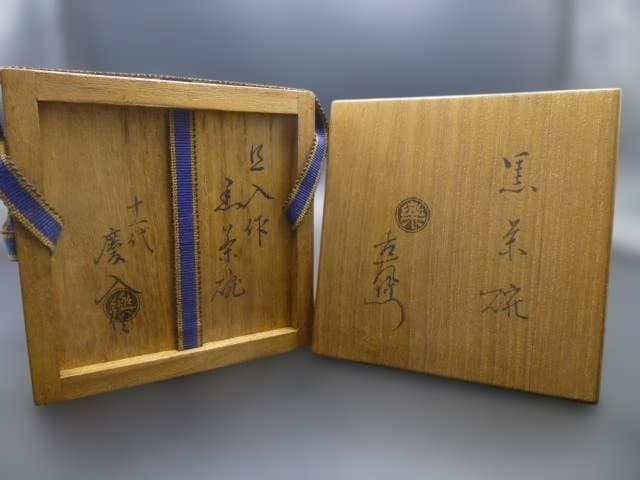 黒茶碗
樂
吉左衛門
旦入作
黒茶碗
十一代
慶入
樂